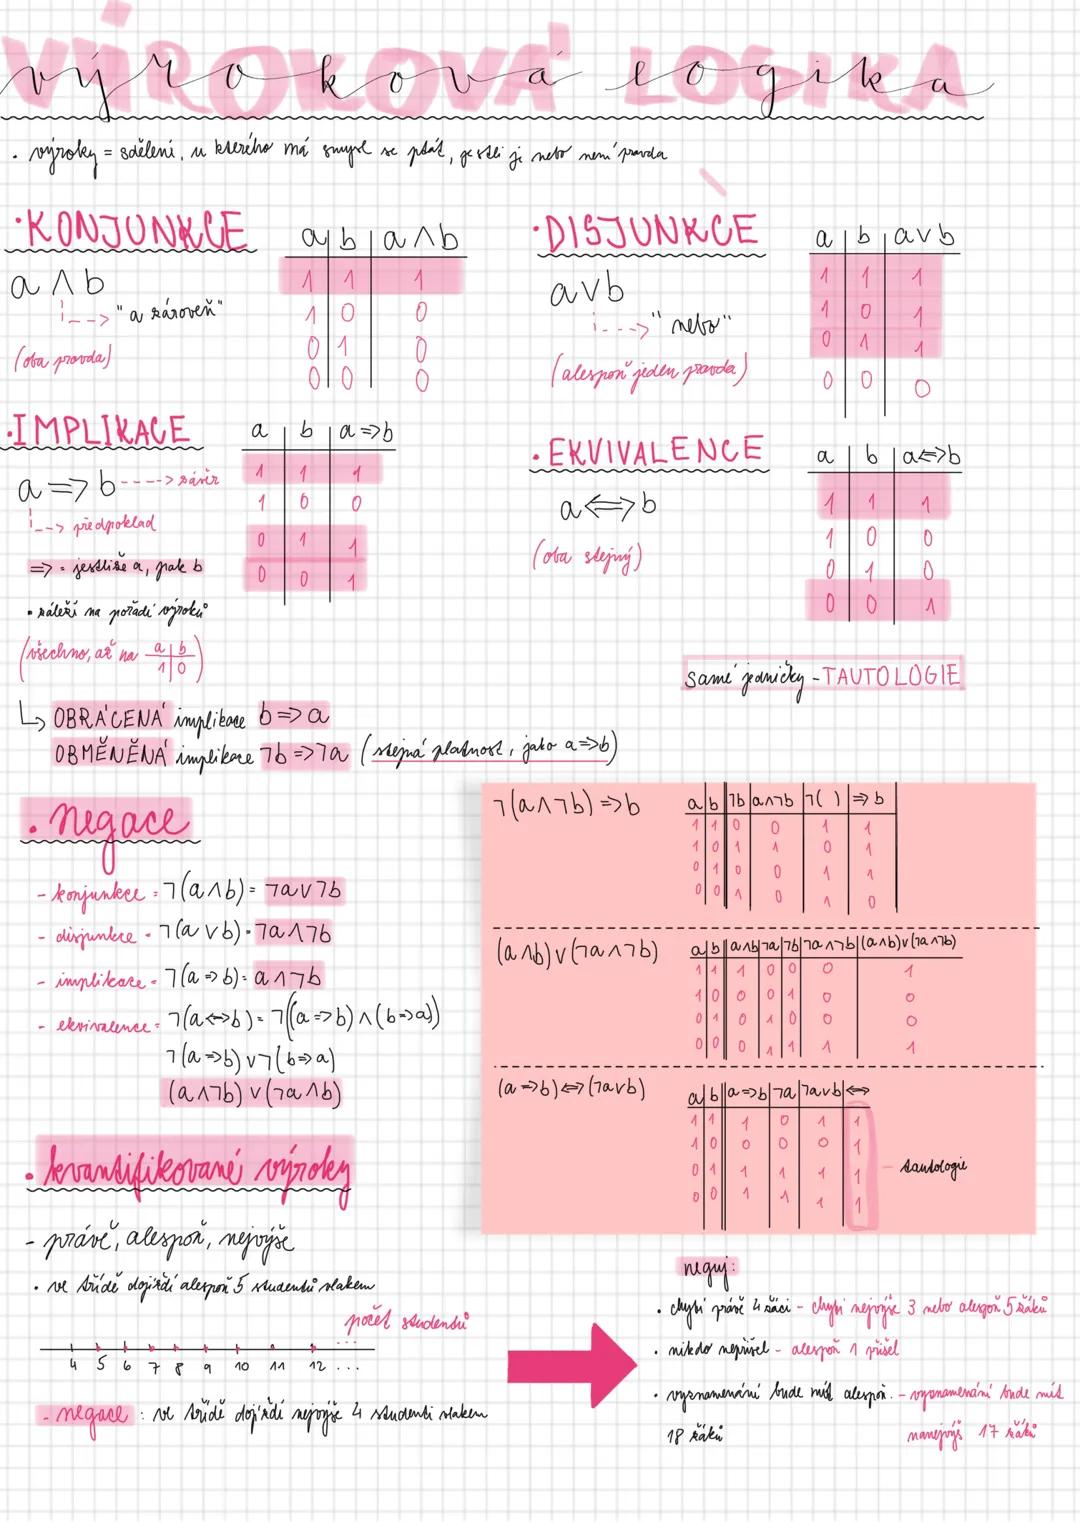 výroková logika
VÝROKOVÁ LOGIKA
• výroky = sdělení, u kterého má smysl se ptát, jestli je nebo není pravda
• KONJUNKCE
a ∧ b
"a zároveň"
(oba pravda)
a | b | a∧b
1 | 1 | 1
1 | 0 | 0
0 | 1 | 0
0 | 0 | 0
• DISJUNKCE
a∨b
"nebo"
(alespoň jeden pravda)
a | b | a∨b
1 | 1 | 1
1 | 0 | 1
0 | 1 | 1
0 | 0 | 0
• IMPLIKACE
a => b ----> závěr
--> předpoklad
=> = jestliže a, pak b
• záleží na pořadí výroků
(všechno, až na a | b
1 | 0)
a | b | a=>b
1 | 1 | 1
1 | 0 | 0
0 | 1 | 1
0 | 0 | 1
↳ OBRÁCENÁ implikace b => a
OBMĚNĚNÁ implikace ¬b => ¬a (stejná platnost, jako a=>b)
• EKVIVALENCE
a <=> b
(oba stejný)
a | b | a<=>b
1 | 1 | 1
1 | 0 | 0
0 | 1 | 0
0 | 0 | 1
samé jedničky - TAUTOLOGIE
• negace
- konjunkce = ¬(a∧b) = ¬a∨¬b
- disjunkce = ¬(a∨b) = ¬a∧¬b
- implikace = ¬(a=>b) = a∧¬b
- ekvivalence = ¬(a<=>b) = ¬((a=>b)∧(b=>a))
¬(a=>b)∨¬(b=>a)
(a∧¬b)∨(¬a∧b)
¬(a∧¬b)=>b
a | b | ¬b | a∧¬b | ¬( ) | => b
1 | 1 | 0 | 0 | 1 | 1
1 | 0 | 1 | 1 | 0 | 1
0 | 1 | 0 | 0 | 1 | 1
0 | 0 | 1 | 0 | 1 | 0
(a∧b)∨(¬a∧¬b)
a | b | a∧b | ¬a | ¬b | ¬a∧¬b | (a∧b)∨(¬a∧¬b)
1 | 1 | 1 | 0 | 0 | 0 | 1
1 | 0 | 0 | 0 | 1 | 0 | 0
0 | 1 | 0 | 1 | 0 | 0 | 0
0 | 0 | 0 | 1 | 1 | 1 | 1
(a=>b)<=>(¬a∨b)
a | b | a=>b | ¬a | ¬a∨b | <=>
1 | 1 | 1 | 0 | 1 | 1
1 | 0 | 0 | 0 | 0 | 1
0 | 1 | 1 | 1 | 1 | 1
0 | 0 | 1 | 1 | 1 | 1
- tautologie
• kvantifikované výroky
- právě, alespoň, nejvýše
• ve třídě dojíždí alespoň 5 studentů vlakem
počet studentů
4 5 6 7 8 9 10 11 12 ...
- negace : ve třídě dojíždí nejvýše 4 studenti vlakem
neguj:
• chybí právě 4 žáci - chybí nejvýše 3 nebo alespoň 5 žáků
• nikdo nepřišel - alespoň 1 přišel
• vyznamenání bude mít alespoň - vyznamenání bude mít
18 žáků nanejvýš 17 žáků